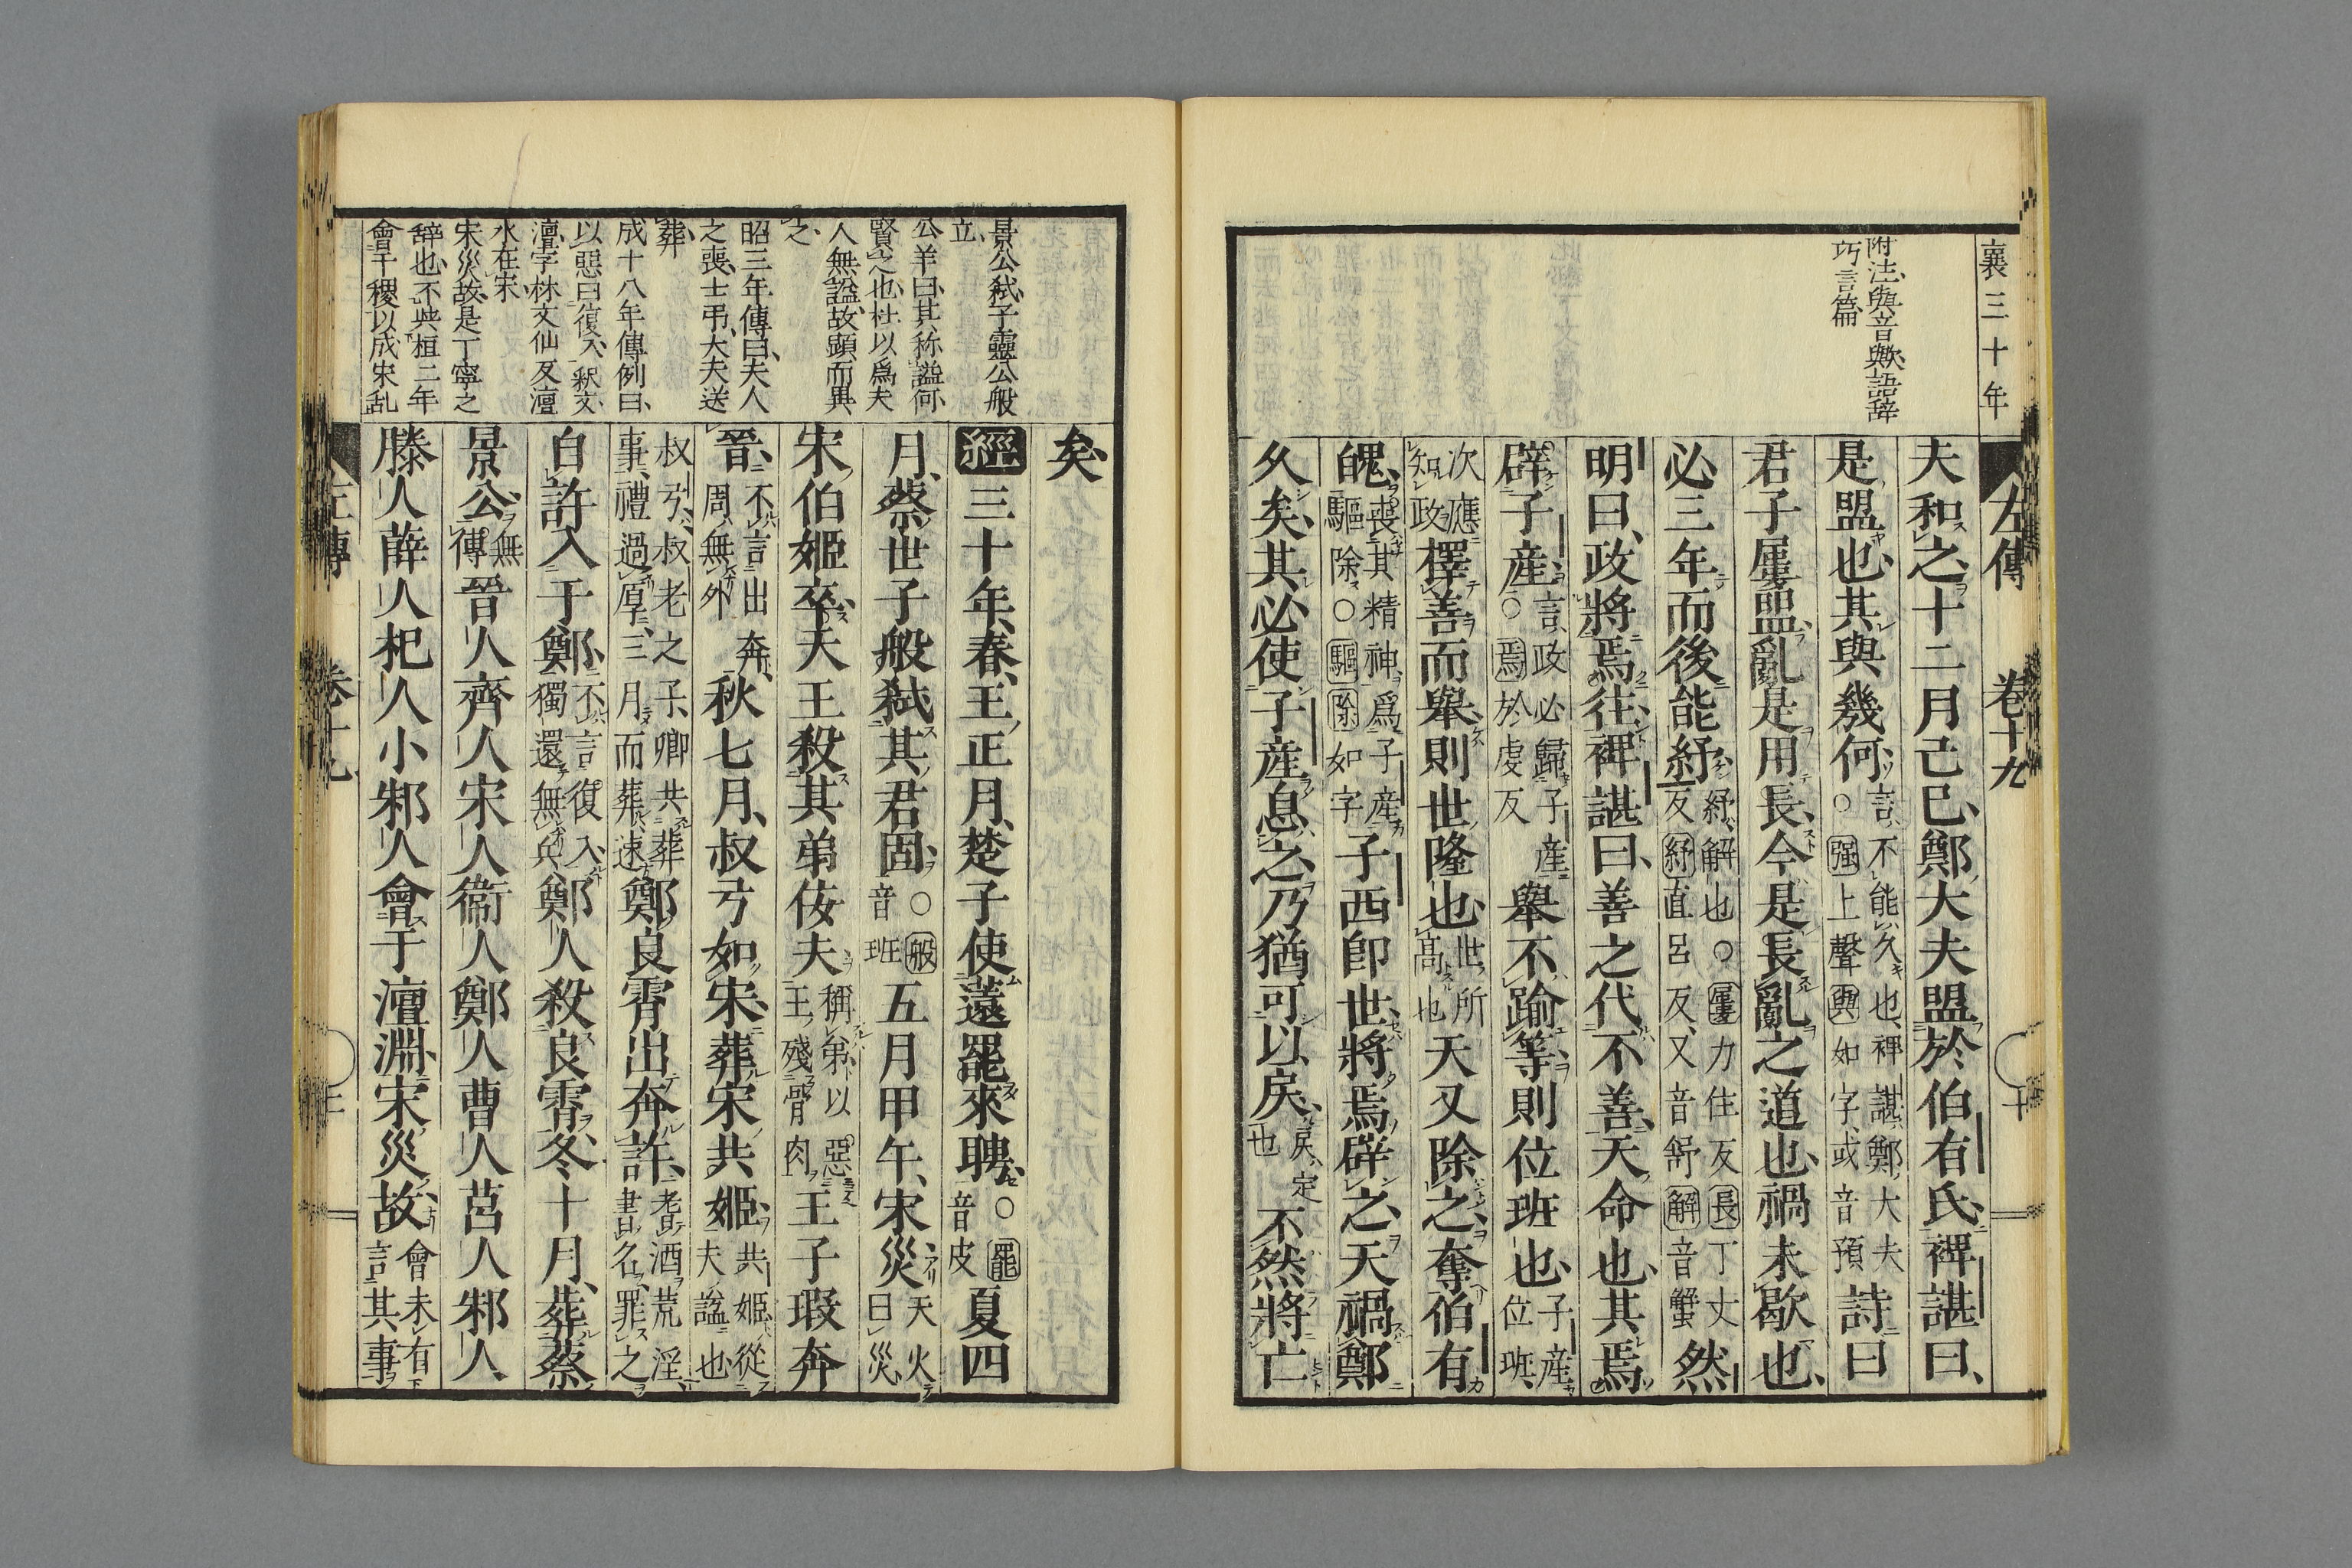 襄三十年
左傳 卷十九 十
附注與音歟語辞
巧言篇
夫和之十二月己巳鄭大夫盟於伯有氏裨諶曰
是盟也其與幾何言不能久也裨諶鄭大夫○强上聲與如字或音預詩曰
君子屢盟亂是用長今是長亂之道也禍未歇也
必三年而後能紓紓解也○屢力住反長丁丈反紓直呂反又音舒解音蟹然
明曰政將焉往裨諶曰善之代不善天命也其焉
辟子產言政必歸子產○焉於虔反舉不踰等則位班也子產位班
次應知政擇善而舉則世隆也世所高也天又除之奪伯有
魄喪其精神爲子產驅除○驅除如字子西卽世將焉辟之天禍鄭
久矣其必使子產息之乃猶可以戾戾定也不然將亡
矣
景公弑子靈公般
立
公羊曰其称謚何
賢之也杜以爲夫
人無謚故顕而異
之
昭三年傳曰夫人
之喪士弔大夫送
葬
成十八年傳例曰
以惡曰復入釈文
澶字林文仙反澶
水在宋
宋災故是丁寧之
辞也不與桓二年
會于稷以成宋乱
經三十年春王正月楚子使薳罷來聘○罷音皮夏四
月蔡世子般弑其君固○般音班五月甲午宋災天火曰災
宋伯姬卒天王殺其弟佞夫稱弟以惡王殘骨肉王子瑕奔
晉不言出奔周無外秋七月叔弓如宋葬宋共姬共姬從夫謚也
叔弓叔老之子卿共葬事禮過厚三月而葬速鄭良霄出奔許耆酒荒淫書名罪之
自許入于鄭不言復入獨還無兵鄭人殺良霄冬十月葬蔡
景公無傳晉人齊人宋人衞人鄭人曹人莒人邾人
滕人薛人杞人小邾人會于澶淵宋災故會未有言其事
左傳 卷十九